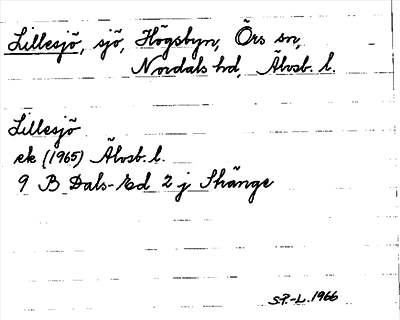 Lillesjö, sjö, Högsbyn, Örs sn,
Nordals hd, Älvsb. l.
Lillesjö
ek (1965) Älvsb. l.
9 B Dals-Ed 2 j Skänge
S.P.-L. 1966